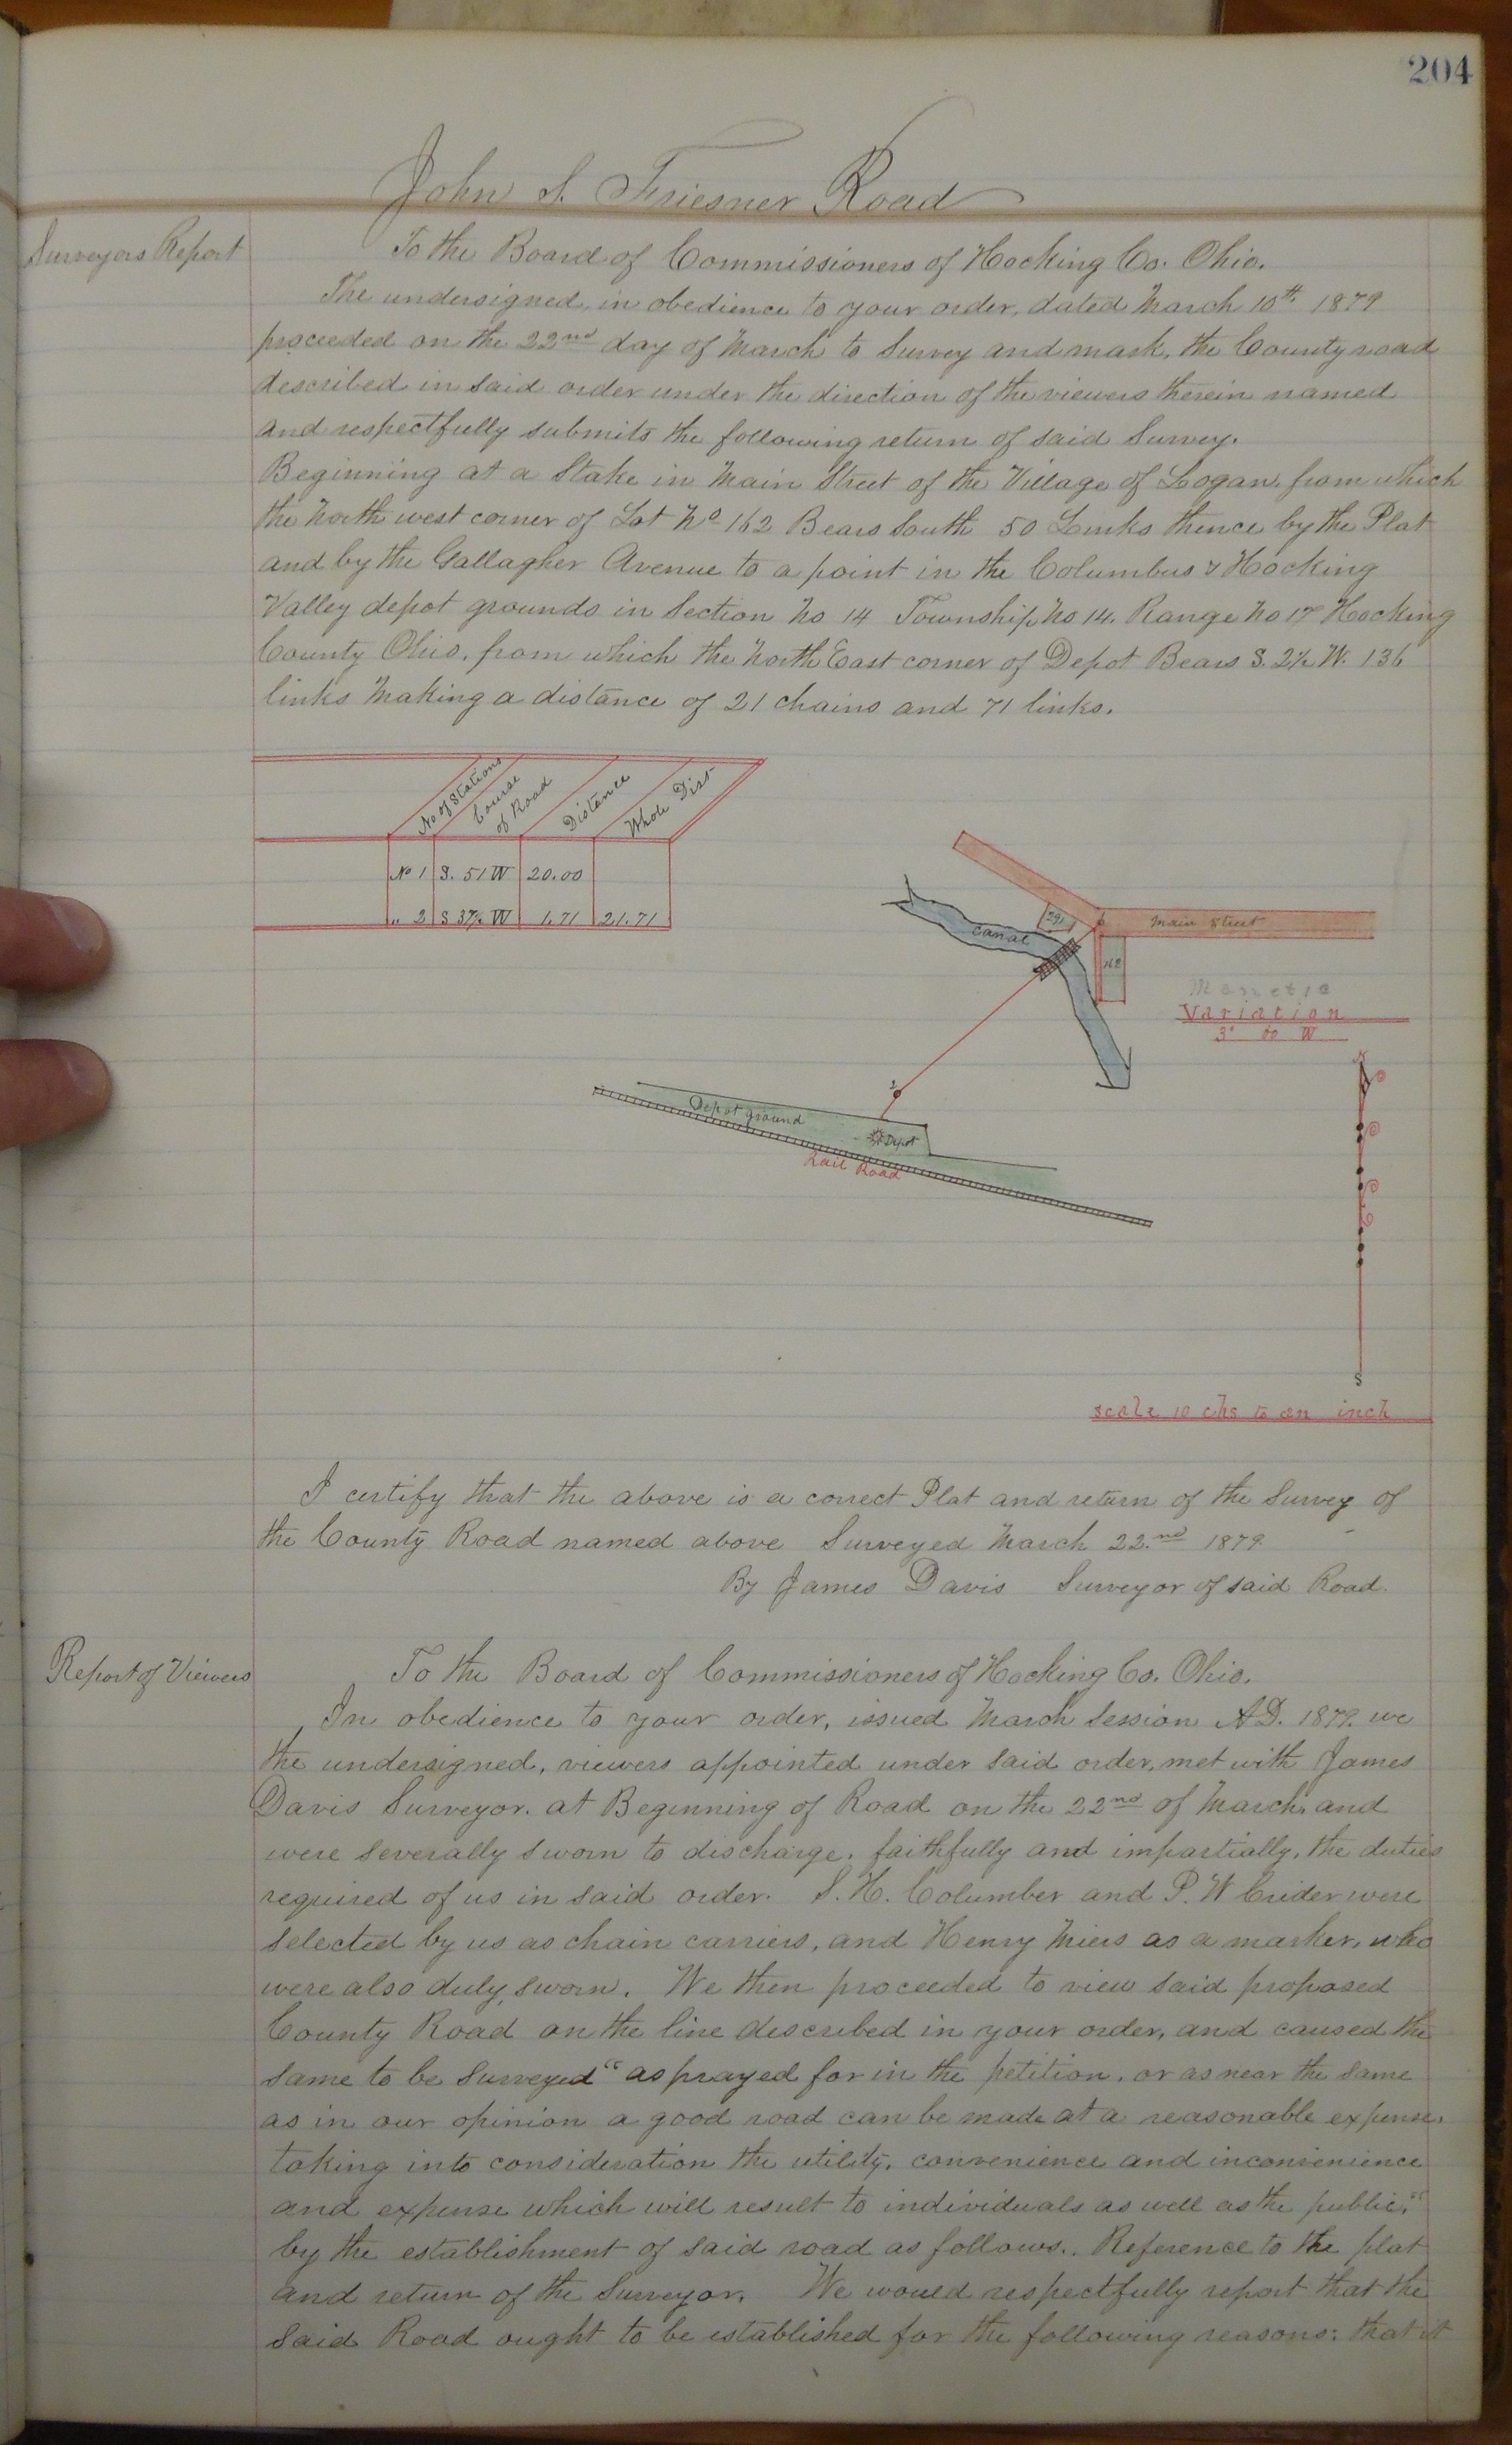 204
John S. Friesner Road
Surveyors Report
To the Board of Commissioners of Hocking Co. Ohio.
The undersigned, in obedience to your order, dated March 10th 1879
proceeded on the 22nd day of March to Survey and mark, the County road
described in said order under the direction of the viewers therein named
and respectfully submits the following return of said Survey.
Beginning at a Stake in Main Street of the Village of Logan, from which
the North west corner of Lot No 162 Bears South 50 Links thence by the Plat
and by the Gallagher Avenue to a point in the Columbus & Hocking
Valley depot grounds in Section No 14 Township No 14. Range No 17 Hocking
County Ohio, from which the North East corner of Depot Bears S. 2½ W. 136
links Making a distance of 21 chains and 71 links.
No of Stations
Course
of Road
Distance
Whole Dist
No 1 S. 51 W 20.00
„ 2 S 37½ W 1.71 21.71
291
Main Street
canal
162
Variation
3° 00 W
2
Depot ground
Depot
Rail Road
S
scale 10 chs to an inch
I certify that the above is a correct Plat and return of the Survey of
the County Road named above Surveyed March 22.nd 1879
By James Davis Surveyor of said Road.
Report of Viewers
To the Board of Commissioners of Hocking Co. Ohio.
In obedience to your order, issued March Session A.D. 1879. we
the undersigned, viewers appointed under said order, met with James
Davis Surveyor. at Beginning of Road on the 22nd of March, and
were severally sworn to discharge, faithfully and impartially, the duties
required of us in said order. S. H. Columber and P. W Crider were
selected by us as chain carriers, and Henry Miers as a marker, who
were also duly, sworn. We then proceeded to view said proposed
County Road on the line described in your order, and caused the
same to be surveyed "as prayed for in the petition, or as near the same
as in our opinion a good road can be made at a reasonable expense,
taking into consideration the utility, convenience and inconvenience
and expense which will result to individuals as well as the public,"
by the establishment of said road as follows.. Reference to the plat
and return of the Surveyor. We would respectfully report that the
said Road ought to be established for the following reasons: that it